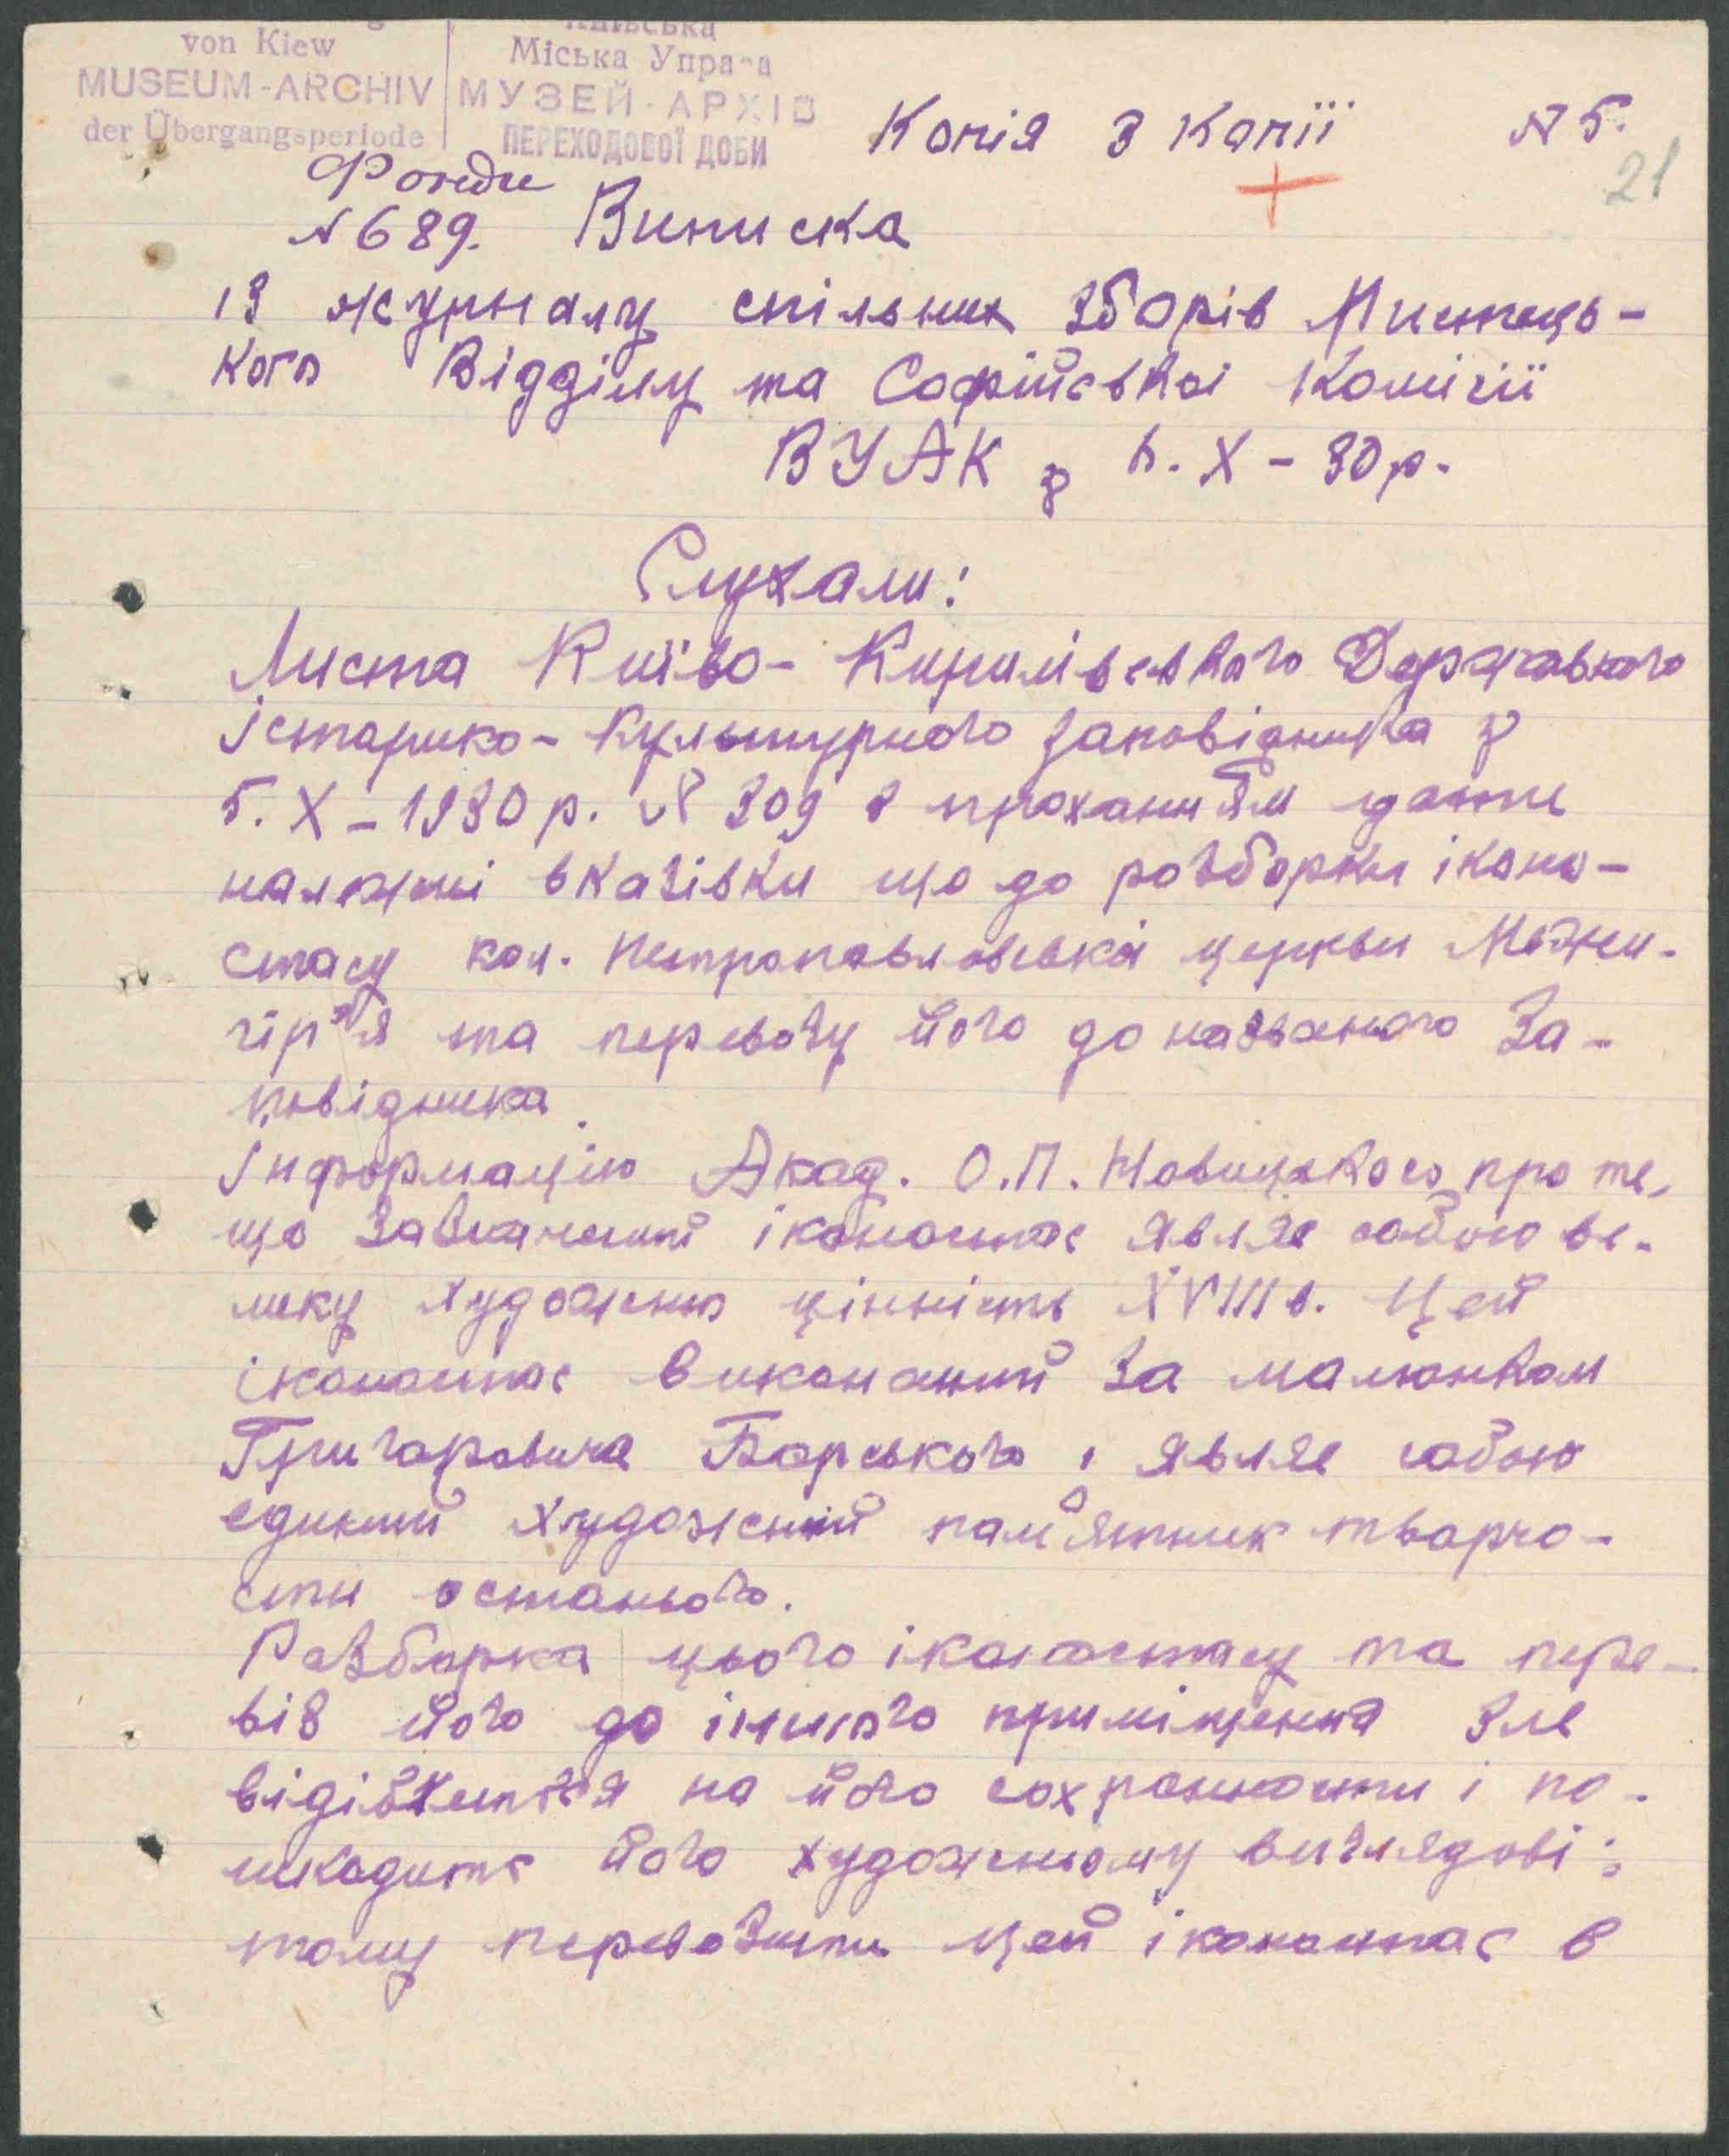 von Kiew
MUSEUM-ARCHIV
der Übergangsperiode
Київська
Міська Управа
МУЗЕЙ-АРХІВ
ПЕРЕХОДОВОЇ ДОБИ
Копія з копії №5.
21
Фонди
№689. Виписка
із журналу спільних зборів Мистець-
кого Відділу та Софійської Комісії
ВУАК з . X – 30 р.
Слухали:
Листа Київо-Кирилівського Державного
історико-культурного заповідника з
5. X – 1930 р. № 309 з проханням дати
належні вказівки що до розборки іконо-
стасу кол. Петропавловської церкви Межи-
гір'я та перевозу його до названого За-
повідника.
Інформацію Акад. О.П. Новицького про те,
що зазначений іконостас являє собою ве-
лику художню цінність XVIII в. Цей
іконостас виконаний за малюнком
Григоровича Борського і являє собою
єдиний художній пам'ятник творчо-
сти останього.
Розборка цього іконостасу та пере-
віз його до іншого приміщення зле
відіб'ється на його сохранности і по-
шкодить його художньому виглядові;
тому перевозити цей іконостас в